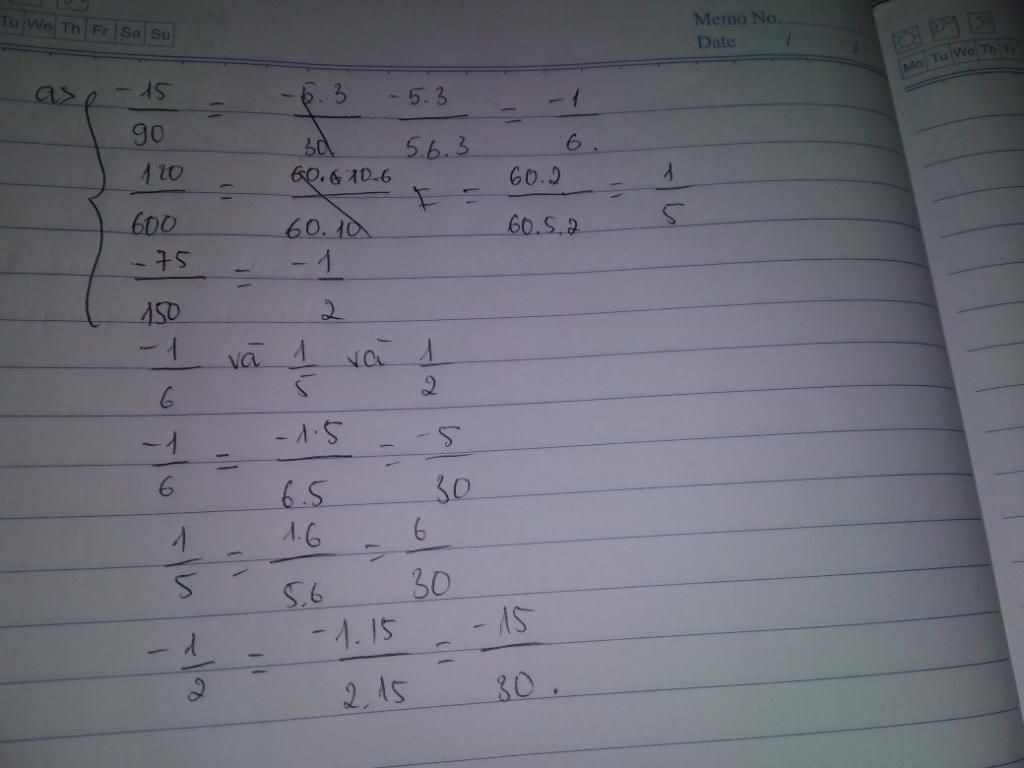 Tu We Th Fr Sa Su
Memo No.
Date / /
Mo Tu We Th Fr
a> { -15/90 = -5.3/30 -5.3/5.6.3 = -1/6.
120/600 = 60.6 10.6/60.10 = 60.2/60.5.2 = 1/5
-75/150 = -1/2
-1/6 vā 1/5 vā 1/2
-1/6 = -1.5/6.5 = -5/30
1/5 = 1.6/5.6 = 6/30
-1/2 = -1.15/2.15 = -15/30.